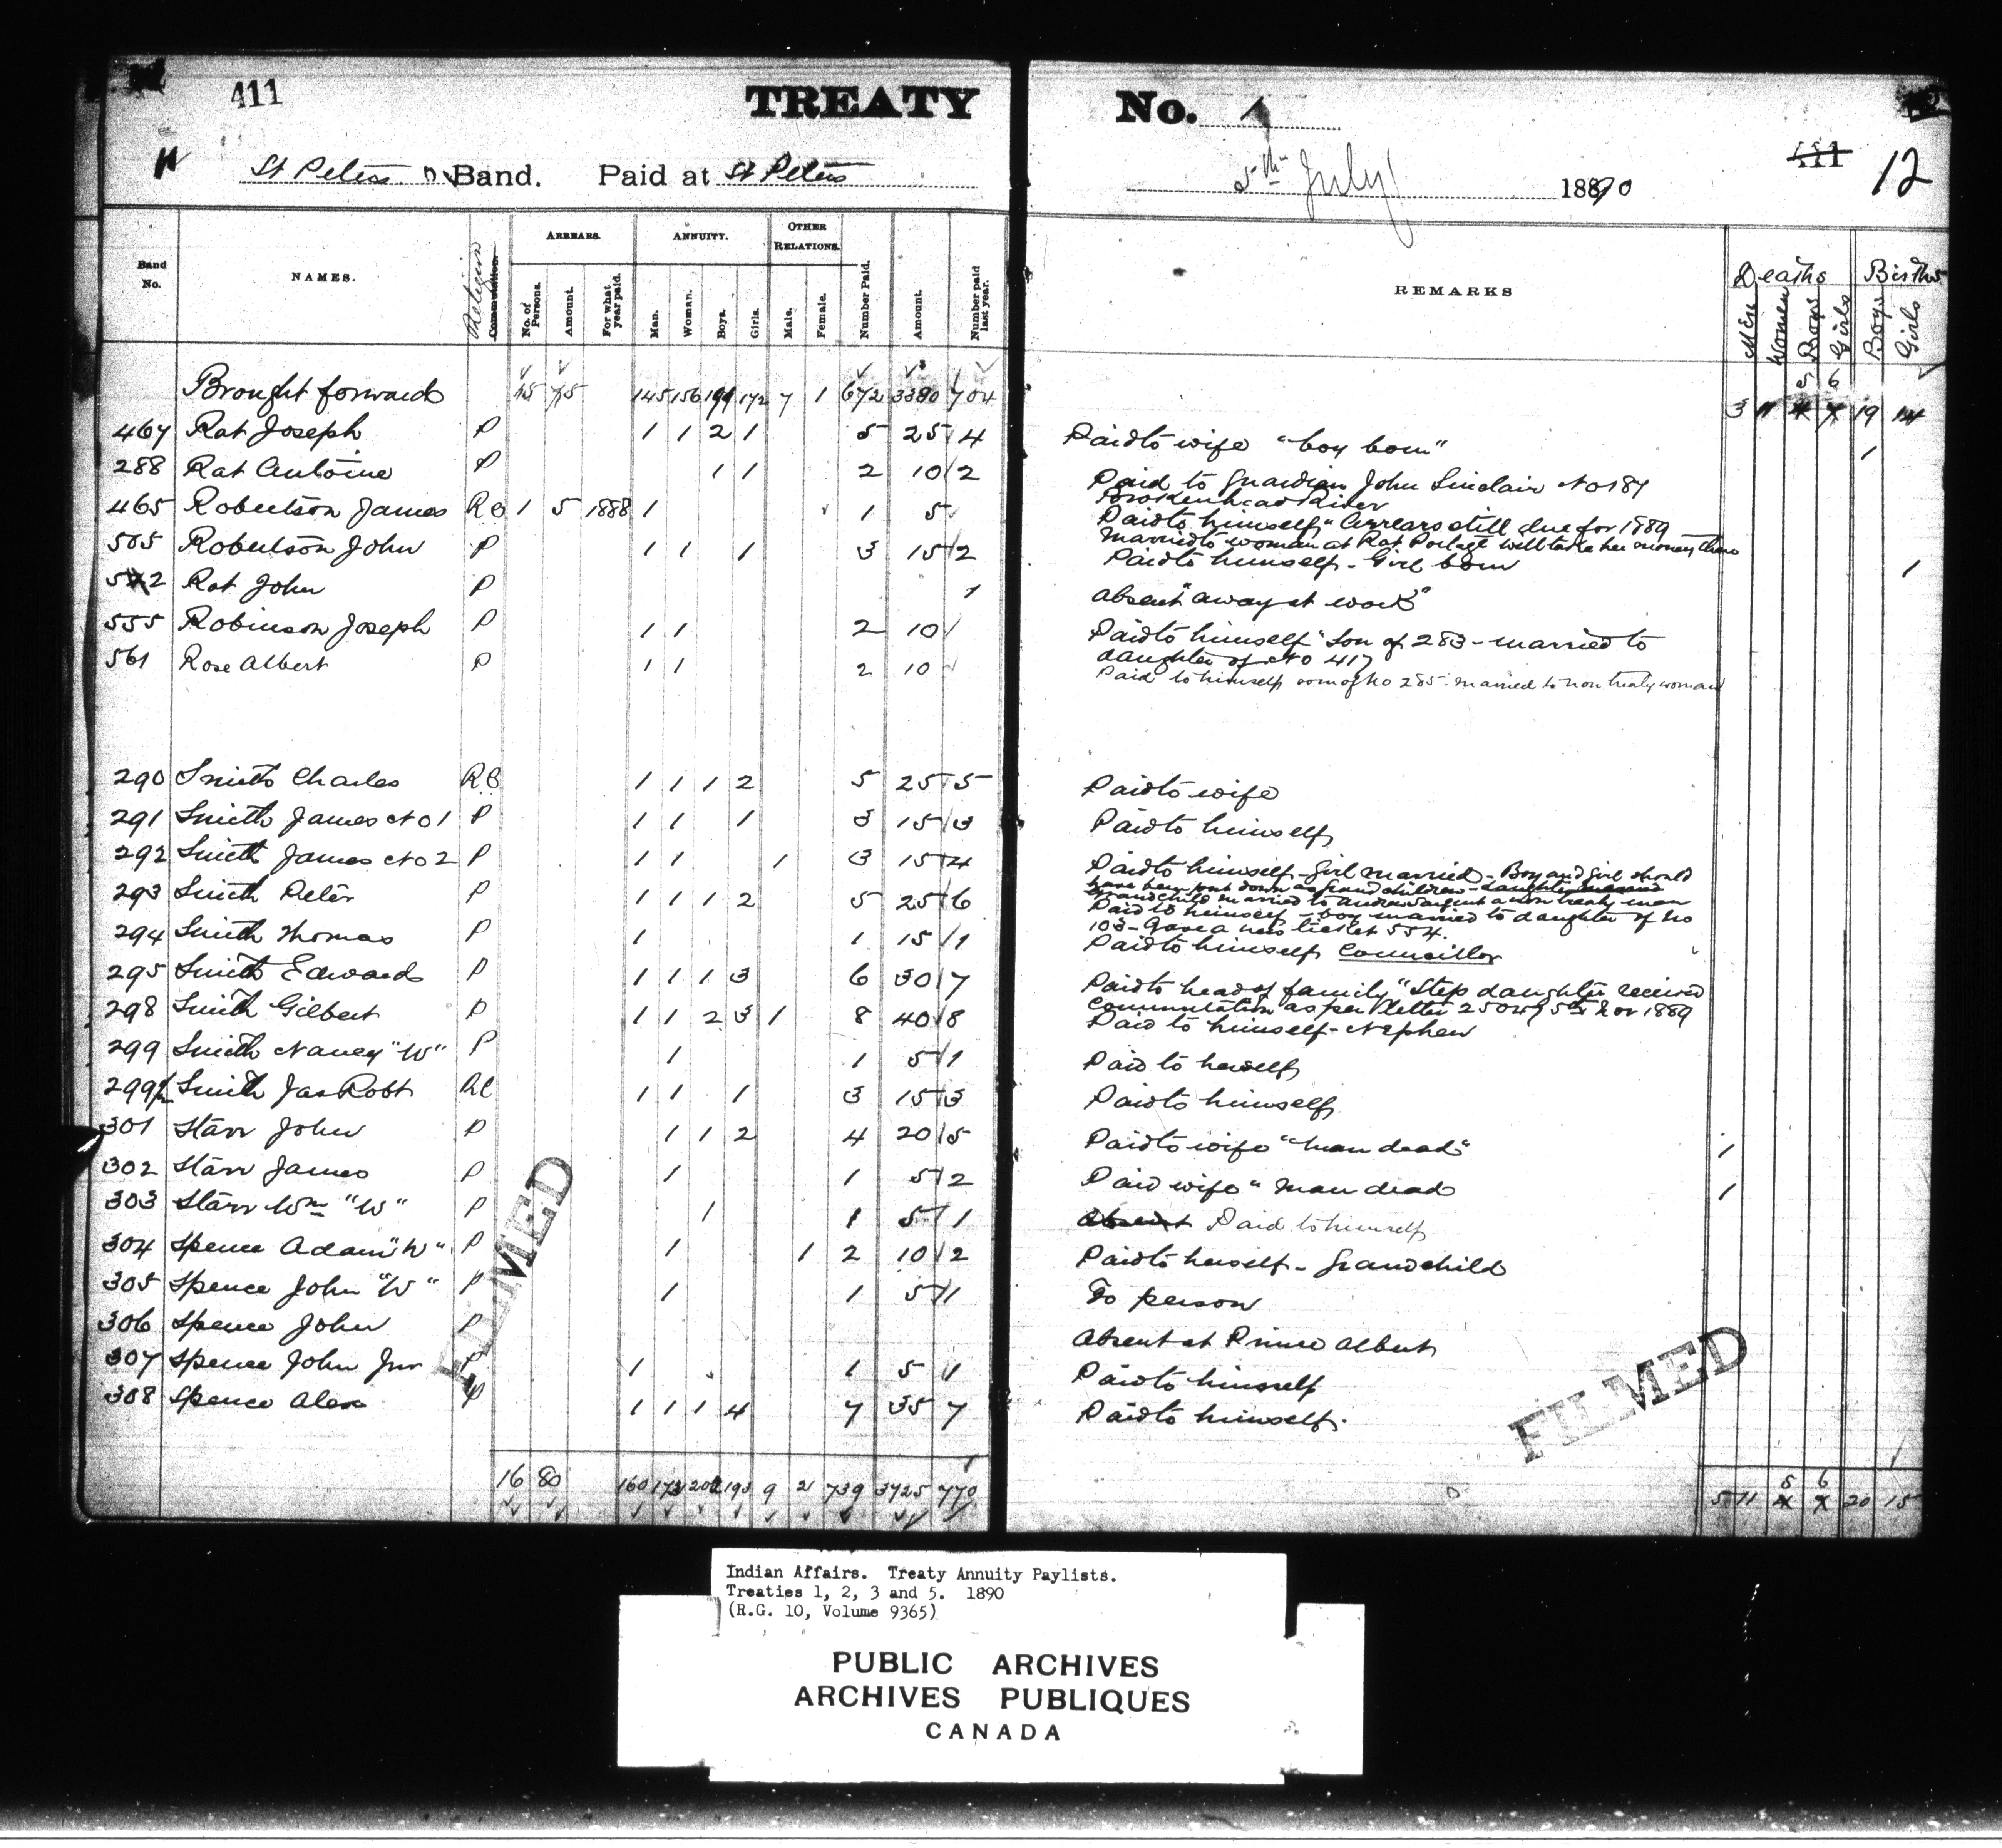 411
TREATY No. 1
411 12
St Peters Band. Paid at St Peters 5th July 1890
Band No. NAMES. Religion Commutation. ARREARS. No. of Persons. Amount. For what year paid. ANNUITY. Man. Woman. Boys. Girls. OTHER RELATIONS. Male. Female. Number Paid. Amount. Number paid last year. REMARKS Deaths Men Women Boys Girls Births Boys Girls
Brought forward 15 75 145 156 191 172 7 1 672 3380 704 3 11 5 6 19 14
467 Rat Joseph P 1 1 2 1 5 25 4 Paid to wife "boy born" 1
288 Rat Antoine P 1 1 2 10 2 Paid to Guardian John Sinclair No 187
Brokenhead River
465 Robertson James RC 1 5 1888 1 1 5 Paid to himself "Arrears still due for 1889
married to woman at Rat Portage will take her money there
505 Robertson John P 1 1 1 3 15 2 Paid to himself - Girl born 1
542 Rat John P 1 Absent "away at work"
555 Robinson Joseph P 1 1 2 10 Paid to himself "Son of 283 - married to
daughter of No 417
561 Rose Albert P 1 1 2 10 Paid to himself son of No 285 - married to non treaty woman
290 Smith Charles R.C 1 1 1 2 5 25 5 Paid to wife
291 Smith James No 1 P 1 1 1 3 15 3 Paid to himself
292 Smith James No 2 P 1 1 1 3 15 4 Paid to himself - Girl married - Boy and Girl should
have been put down as Grand children - daughter married
Grandchild married to Andrew Sargent a non treaty man
293 Smith Peter P 1 1 1 2 5 25 6 Paid to himself - boy married to daughter of No
103 - Gave a new ticket 554.
294 Smith Thomas P 1 1 15 1 Paid to himself Councillor
295 Smith Edward P 1 1 1 3 6 30 7 Paid to head of family "Step daughter received
commutation as per letter 25047 5th Nov 1889
298 Smith Gilbert P 1 1 2 3 1 8 40 8 Paid to himself - Nephew
299 Smith Nancy "W" P 1 1 5 1 Paid to herself
299½ Smith Jas Robt RC 1 1 1 3 15 3 Paid to himself
301 Starr John P 1 1 2 4 20 5 Paid to wife "man dead" 1
302 Starr James P 1 1 5 2 Paid wife "man dead 1
303 Starr Wm "W" P 1 1 5 1 Absent Paid to himself
304 Spence Adam "W" P 1 1 2 10 2 Paid to herself - Grandchild
305 Spence John "W" P 1 1 5 1 To person
306 Spence John P Absent at Prince Albert
307 Spence John Jnr P 1 1 5 1 Paid to himself
308 Spence Alex P 1 1 1 4 7 35 7 Paid to himself.
16 80 160 173 202 193 9 2 739 3725 770 5 11 5 6 20 15
FILMED
FILMED
Indian Affairs. Treaty Annuity Paylists.
Treaties 1, 2, 3 and 5. 1890
(R.G. 10, Volume 9365)
PUBLIC ARCHIVES
ARCHIVES PUBLIQUES
CANADA